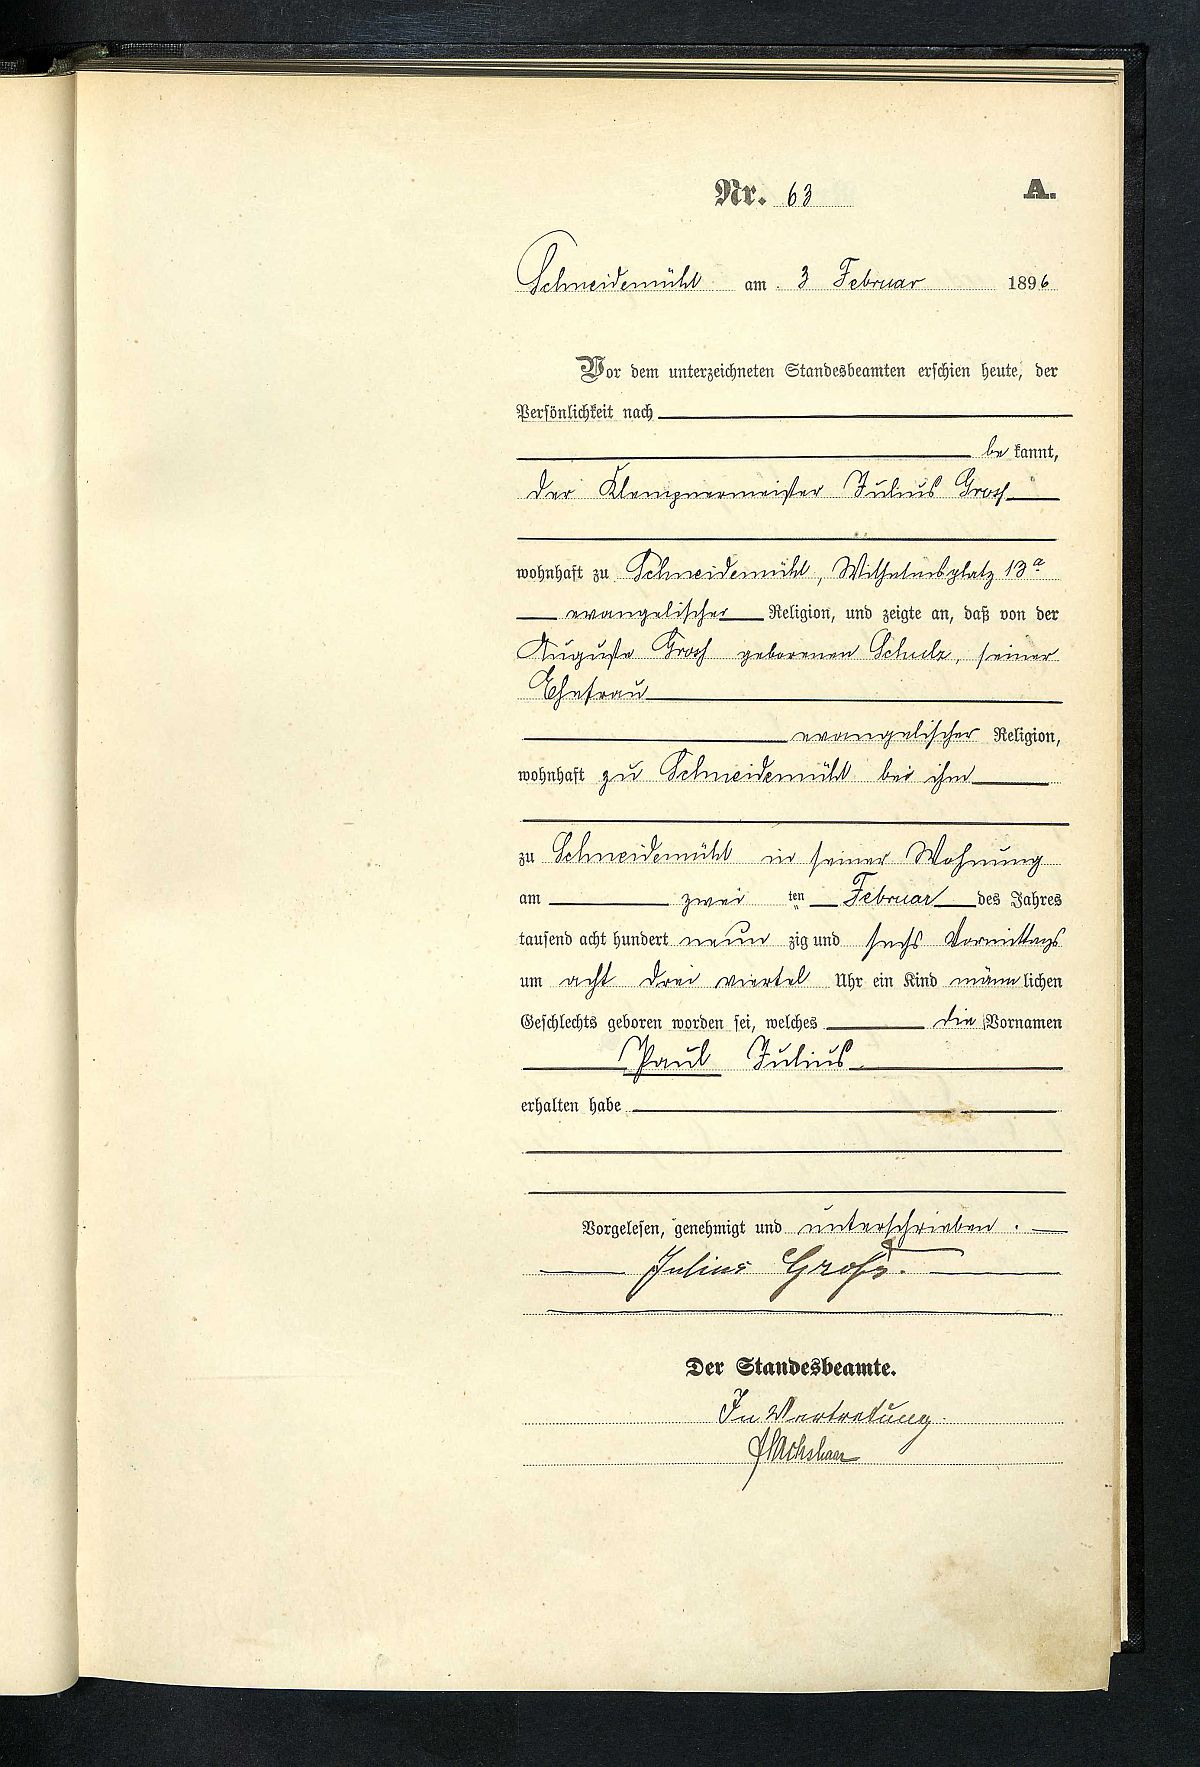 Nr. 63 A.
Schneidemühl am 3 Februar 1896
Vor dem unterzeichneten Standesbeamten erschien heute, der
Persönlichkeit nach
be kannt,
der Klempnermeister Julius Groß
wohnhaft zu Schneidemühl, Wilhelmsplatz 13a
evangelischer Religion, und zeigte an, daß von der
Auguste Groß geborenen Schulz, seiner
Ehefrau
evangelischer Religion,
wohnhaft zu Schneidemühl bei ihm
zu Schneidemühl in seiner Wohnung
am zwei ten Februar des Jahres
tausend acht hundert neun zig und sechs Vormittags
um acht drei viertel Uhr ein Kind männ lichen
Geschlechts geboren worden sei, welches die Vornamen
Paul Julius
erhalten habe
Vorgelesen, genehmigt und unterschrieben.
Julius Groß.
Der Standesbeamte.
In Vertretung.